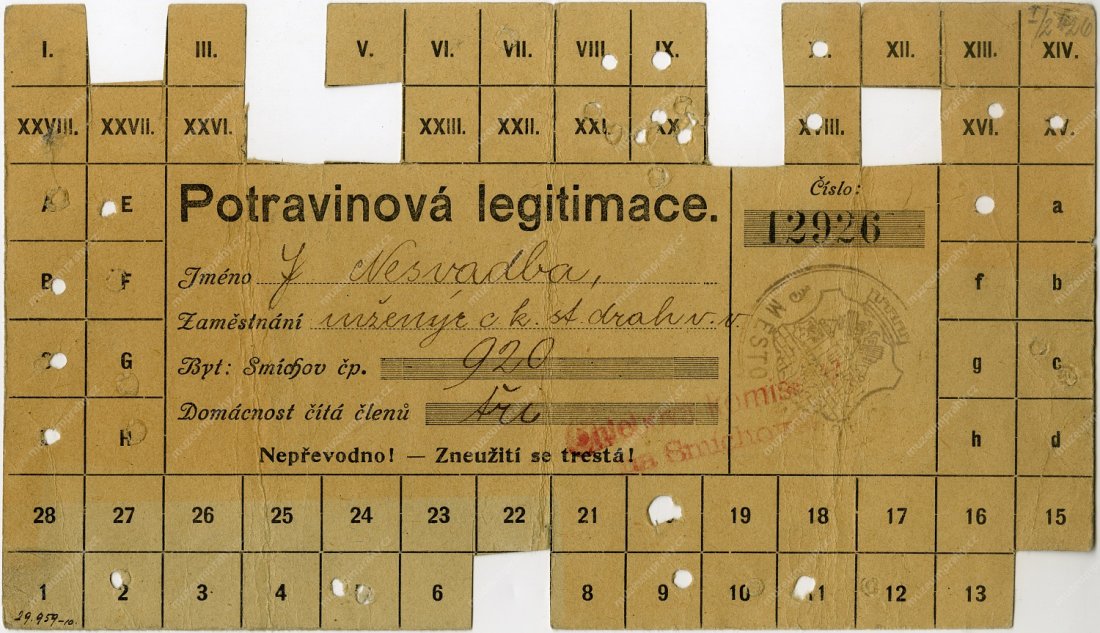 I. III. V. VI. VII. VIII. IX. XII. XIII. XIV.
I/2 II 26
XXVIII. XXVII. XXVI. XXIII. XXII. XXI. XX. XVIII. XVI. XV.
A E
Potravinová legitimace.
Číslo:
12926
a
B F
Jméno J Nesvadba,
f b
Zaměstnání inženýr c k. st drah v. v.
MĚSTO
G
Byt: Smíchov čp. 920
g c
Domácnost čítá členů tři
komise
na Smíchově
H
h d
Nepřevodno! — Zneužití se trestá!
28 27 26 25 24 23 22 21 19 18 17 16 15
1 2 3 4 5 6 8 9 10 11 12 13
29.959-10